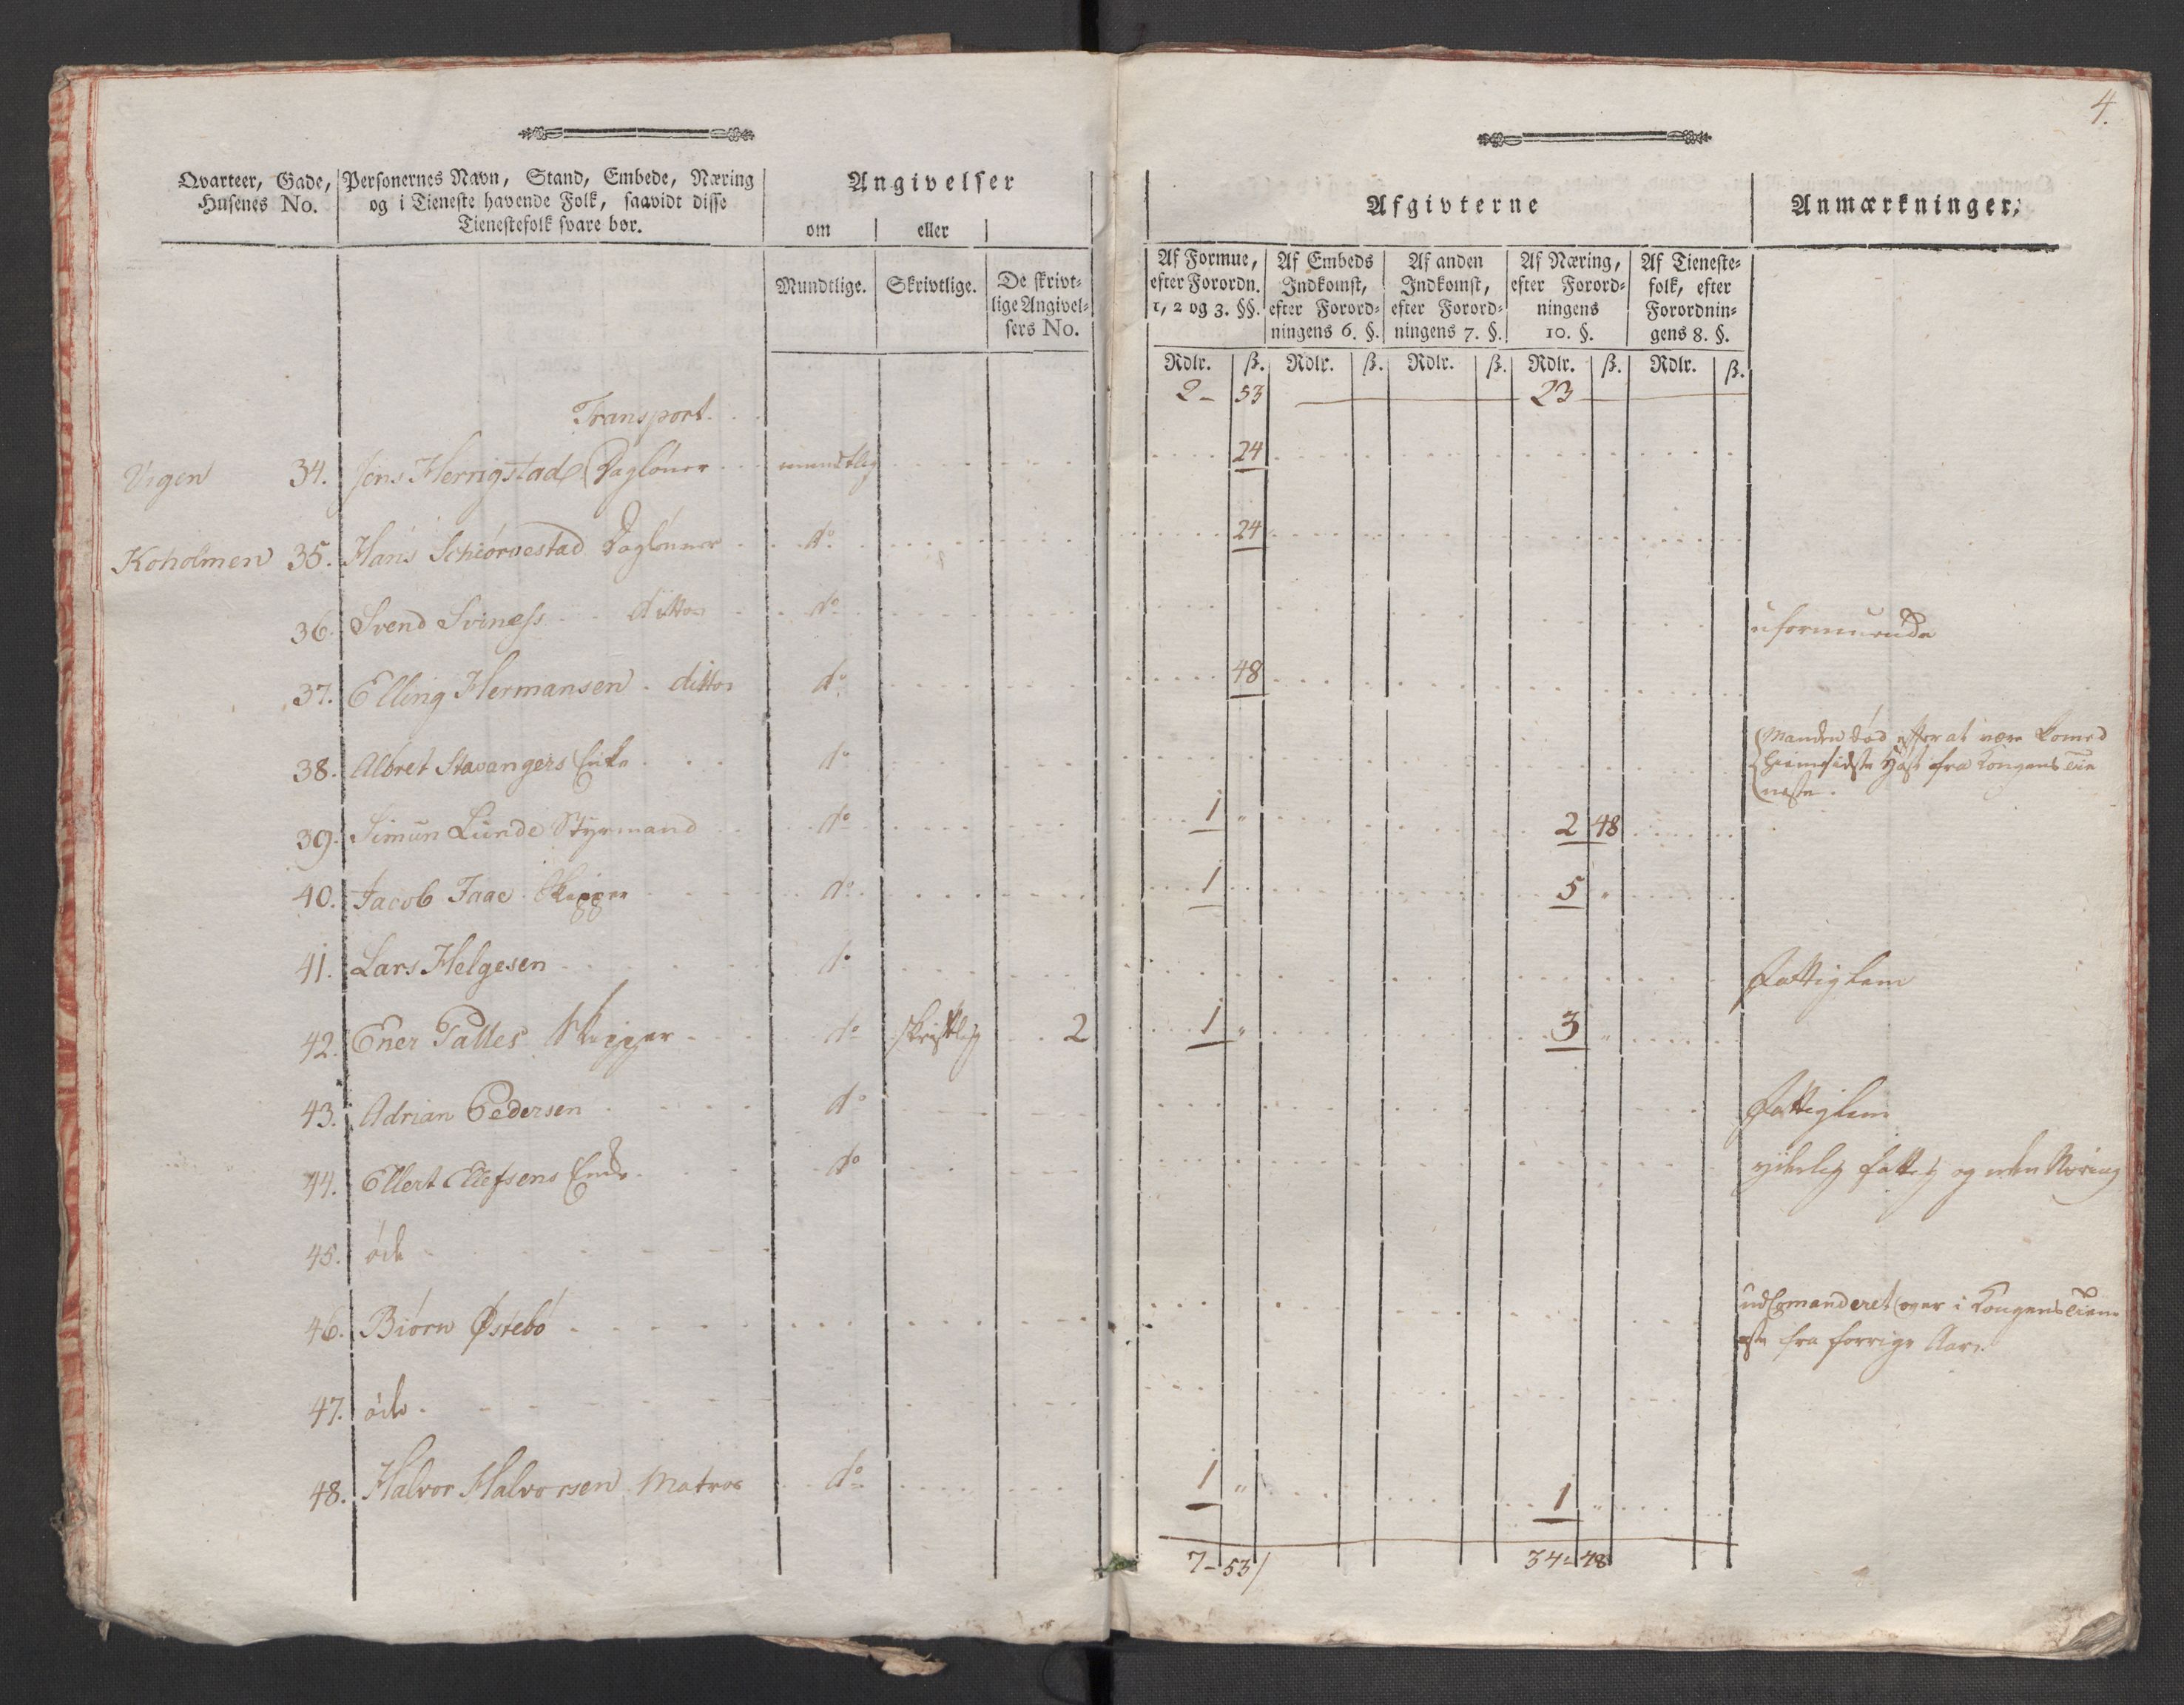 4.
Qvarteer, Gade,
Husenes No.
Personernes Navn, Stand, Embede, Næring
og i Tieneste havende Folk, saavidt disse
Tienestefolk svare bør.
Angivelser
om eller
Mundtlige. Skrivtlige. De skrivt-
lige Angivel-
sers No.
Afgivterne
Anmærkninger.
Af Formue,
efter Forordn.
1, 2 og 3. §§.
Af Embeds
Indkomst,
efter Forord-
ningens 6. §.
Af anden
Indkomst,
efter Forord-
ningens 7. §.
Af Næring,
efter Forord-
ningens
10. §.
Af Tieneste-
folk, efter
Forordnin-
gens 8. §.
Rdlr. ß. Rdlr. ß. Rdlr. ß. Rdlr. ß. Rdlr. ß.
Transport. 2 - 53 23
Vigen 34. Jens Herrigstad Dagløner mundtlig 24
Koholmen 35. Hans Schiørvestad Daglønner do 24
36. Svend Sviness ditto do uformuende
37. Elling Hermansen ditto do 48
38. Albret Stavangers Enke do Manden død efter at være komed
hiem sidste Høst fra Kongens Tie
neste.
39. Simun Lunde Styrmand do 1 " 2 48
40. Jacob Jaae Skipper do 1 5 "
41. Lars Helgesen do Fattiglem
42. Ener Talles Skipper do skriftlig 2 1 " 3 "
43. Adrian Pedersen do Fattiglem
44. Ellert Ellefsens Enke do fattig og uden Næring
45. øde
46. Biørn Østebø udComanderet oger i Kongens Tiene
ste fra forrige Aar.
47. øde
48. Halvor Halvorsen Matros do 1 " 1 "
7 - 53 34 - 48